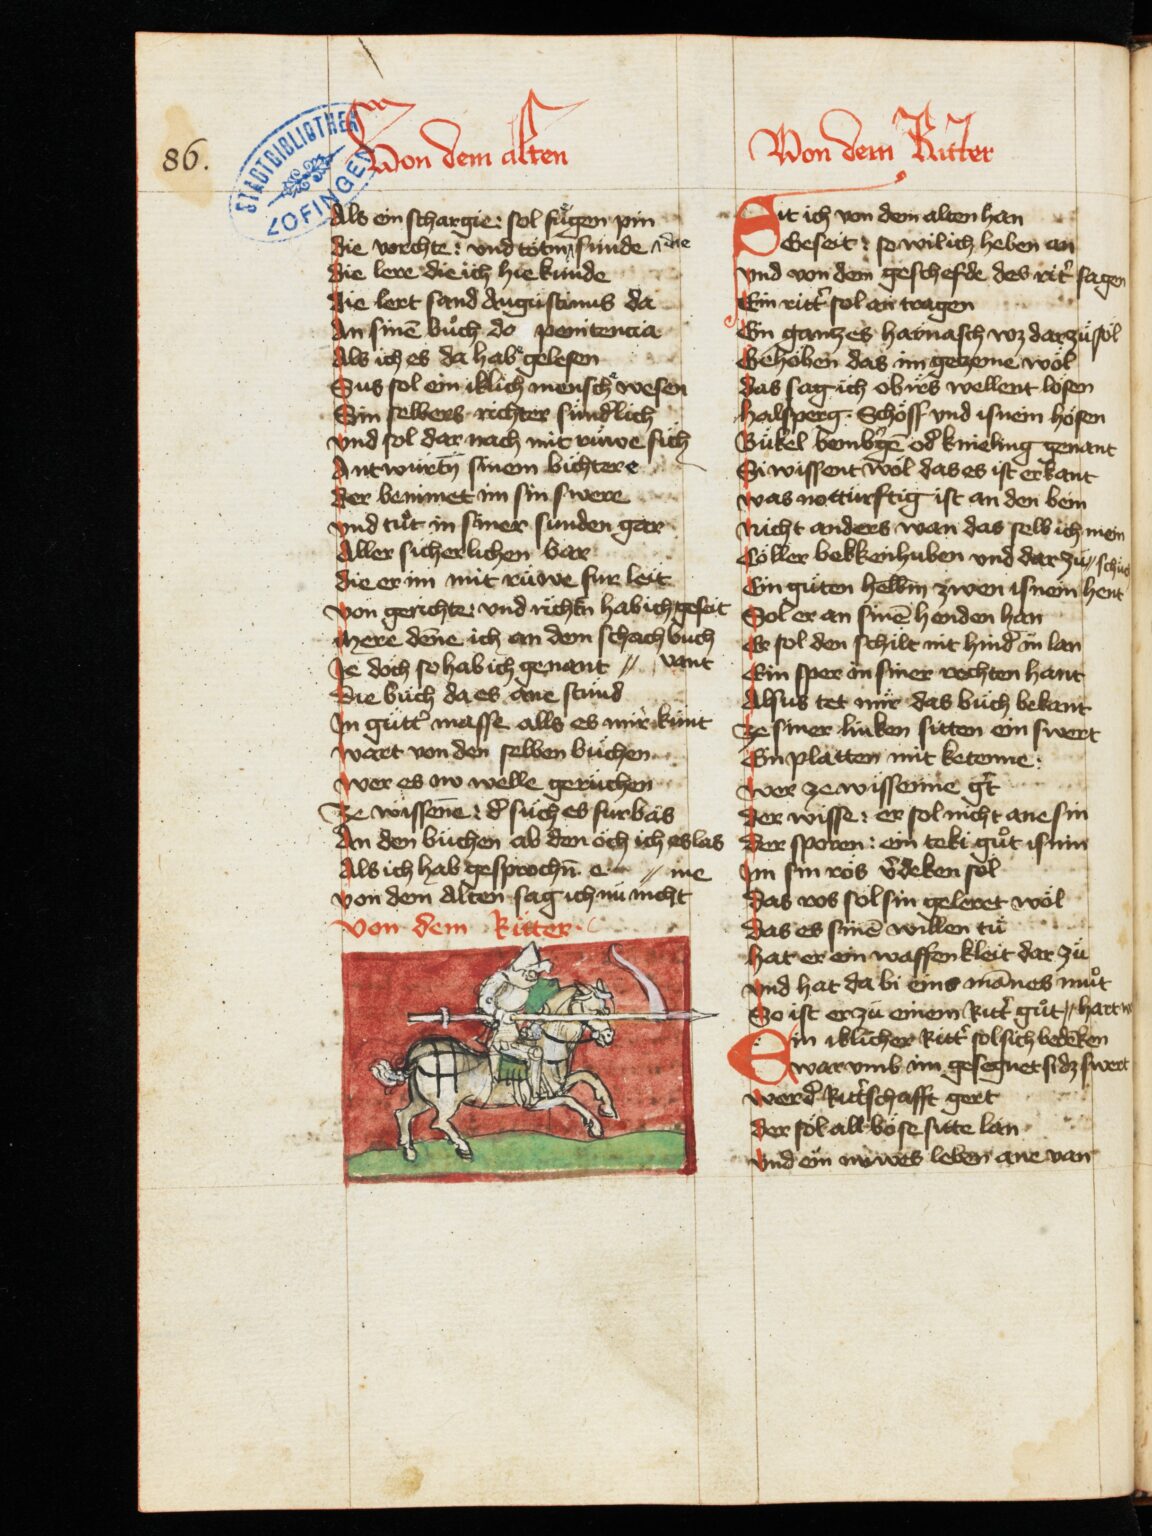 86.
STADTBIBLIOTHEK
ZOFINGEN
Von dem alten
Als ein schargie: sol fuͤgen pin
die vorchte: und toͤtn suͤnde die
die lere die ich hie kuͤnde
die lert sand Augustinus da
An sinē buͦch do penitencia
Als ich es da hab gelesen
Sus sol ein iklich mensch wesen
Sin selbers richter sunderlich
und sol dar nach mit ruͤwe sich
Antwurtn sinem bichtere
der benimet im sin swere
und tuͦt in siner sunden gar
Aller sicherlichen bar
die er im mit ruͤwe fur leit
von gerichte: und richtn hab ich geseit
mere dēne ich an dem schachbuch
Je doch so hab ich genant // vant
die buͤch da es ane stuͤnd
In guͤtt' masse alls es mir kunt
wart von den selben buͤchen
wer es nv welle geruͤchen
ze wissene: d' suͤch es furbas
An den buͤchen ab den och ich es las
Als ich hab gesprochn̄ e // me
von dem Alten sag ich nu nicht
Von dem Ritter
Von dem Ritter
Sit ich von dem alten han
Geseit: so wil ich heben an
und von dem geschefde des rit' sagen
Ein ritt' sol an tragen
Ein ganczes harnasch wz dar zuͤ sol
Gehoͤben das im gezeme wol
das sag ich ob irs wellent losen
halsperg. Schoͤss und isnein hosen
Buͤkel od' knieling genant
Si wissent wol das es ist erkant
was notturftig ist an den bein
Nicht anders wan das selb ich mein
Coͤller bekkenhuben und dar zuͤ //
Ein guͤten helm zwen isnein hent
Sol er an sinē henden han
Er sol den schilt nit hind' im lan
Ein sper in siner rechten hant
Alsus tet mir das buͤch bekant
Ze siner linken sitten ein swert
Ein platten mit ketenne:
wer ze wissenne g't
der wisse: er sol nicht ane sin
der sporen: ein teki guͦt isnin
Im sin ros v'deken sol
das ros sol sin geleret wol
das es sinē willen tuͤ
hat er ein waffenkleit dar zuͤ
und hat da bi eins mānes muͦt
So ist er zu einem Ritt' guͦt //
Ein iklicher Ritt' sol sich bedēken
war umb im gesegnet si dz swert
wer d' Ritt'schafft gert
der sol all boͤse sitte lan
und ein nuwes leben ane van